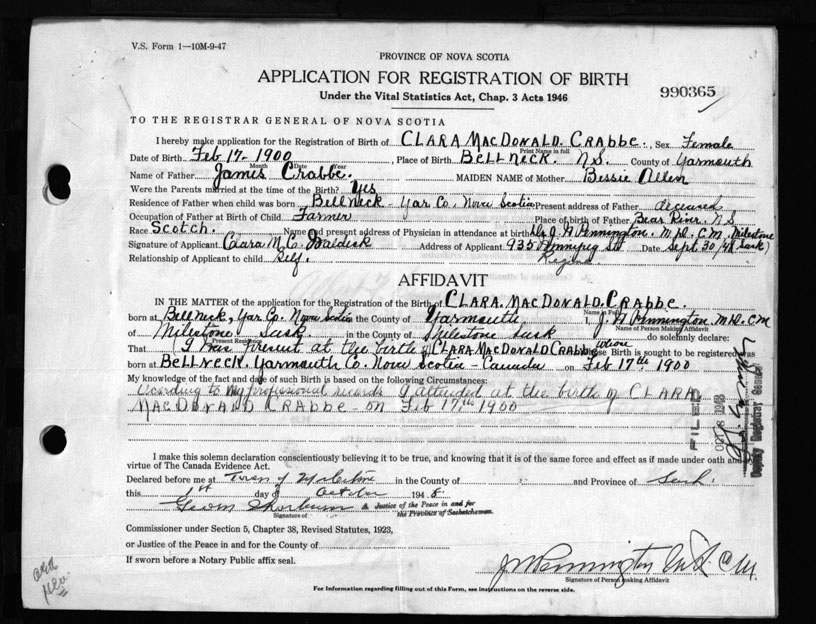 V.S. Form 1—10M-9-47
PROVINCE OF NOVA SCOTIA
APPLICATION FOR REGISTRATION OF BIRTH
990365
Under the Vital Statistics Act, Chap. 3 Acts 1946
TO THE REGISTRAR GENERAL OF NOVA SCOTIA
I hereby make application for the Registration of Birth of CLARA MACDONALD. CRABBE., Sex Female
Print Name in full
Date of Birth Feb 17 - 1900, Place of Birth BELLNECK. N.S. County of Yarmouth
Month Date Year
Name of Father James Crabbe. MAIDEN NAME of Mother Bessie Allen
Were the Parents married at the time of the Birth? Yes
Residence of Father when child was born Bellneck - Yar Co. Nova Scotia Present address of Father deceased
Occupation of Father at Birth of Child Farmer Place of birth of Father Bear River. N.S
Race Scotch. Name and present address of Physician in attendance at birth Dr J. W Pennington. M.D. C.M, Milestone Sask)
Signature of Applicant Clara M. C. Address of Applicant 935 Winnipeg St Date Sept 30/48
Relationship of Applicant to child Self. Regina
AFFIDAVIT
IN THE MATTER of the application for the Registration of the Birth of CLARA. MACDONALD. CRABBE.
Name in Full
born at Bellneck, Yar. Co. Nova Scotia in the County of Yarmouth I, J. W Pennington. M.D. CM
Name of Person Making Affidavit
of Milestone Sask in the County of Milestone Sask do solemnly declare:
Present Residence
That I was present at the birth of CLARA MACDONALD CRABBE whose Birth is sought to be registered was
born at BELLNECK. Yarmouth Co. Nova Scotia - Canada on Feb 17th 1900
My knowledge of the fact and date of such Birth is based on the following Circumstances:
According to my professional records I attended at the birth of CLARA
MACDONALD CRABBE - on Feb 17th 1900
FILED
OCT 8 1948
Deputy Registrar General
I make this solemn declaration conscientiously believing it to be true, and knowing that it is of the same force and effect as if made under oath and by
virtue of The Canada Evidence Act.
Declared before me at Town of Milestone in the County of and Province of Sask.
this 1st day of October 1948.
a Justice of the Peace in and for
the Province of Saskatchewan.
Signature of
Commissioner under Section 5, Chapter 38, Revised Statutes, 1923,
or Justice of the Peace in and for the County of
If sworn before a Notary Public affix seal.
J W Pennington M.D. C.M.
Signature of Person making Affidavit
For Information regarding filling out of this Form, see instructions on the reverse side.